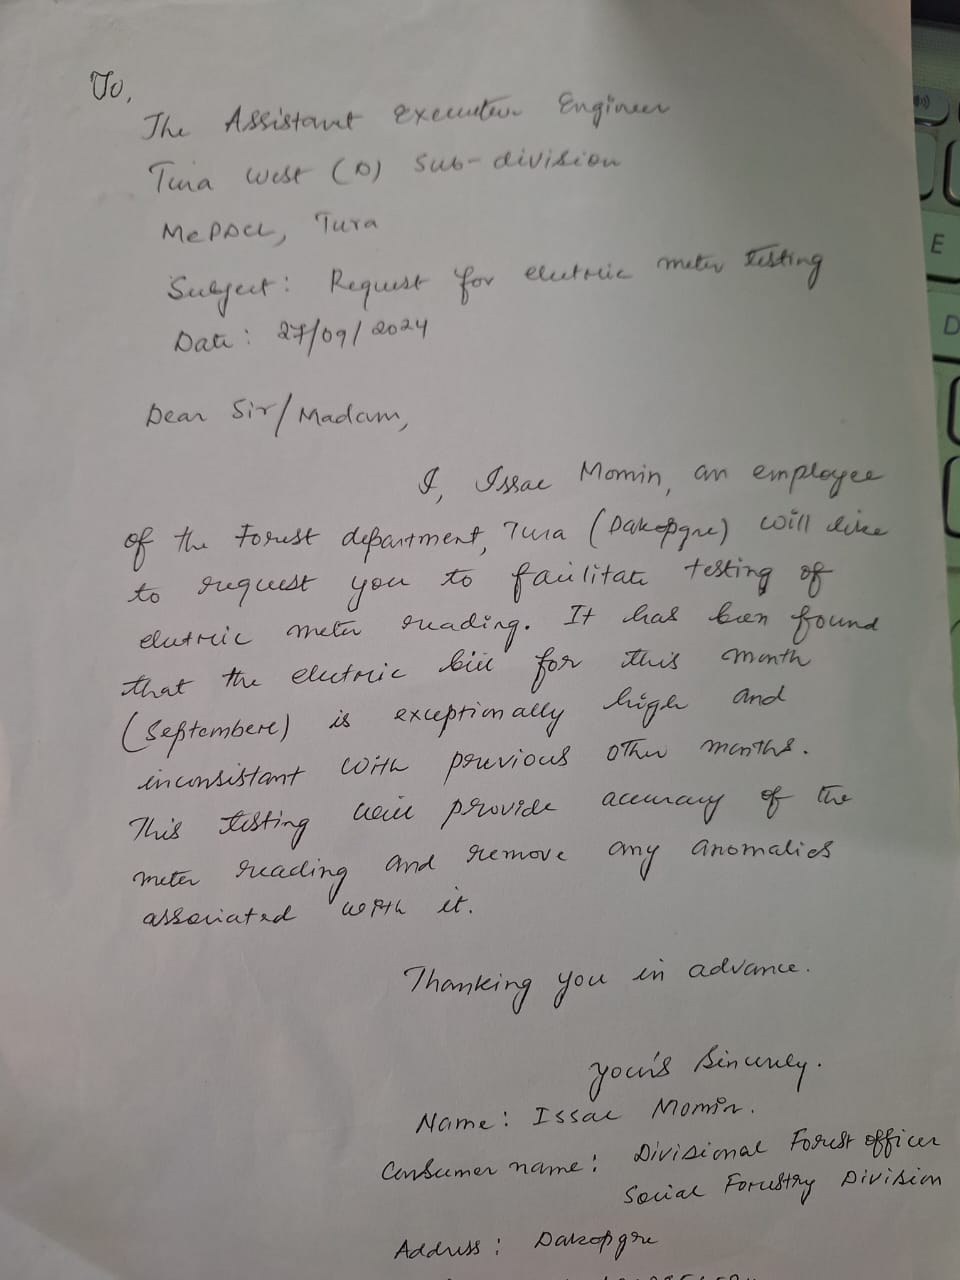 To,
The Assistant Executive Engineer
Tura West (D) Sub-division
MePDCL, Tura
Subject: Request for electric meter testing
Date: 27/09/2024
Dear Sir/Madam,
I, Issac Momin, an employee
of the Forest department, Tura (Dakopgre) will like
to request you to facilitate testing of
electric meter reading. It has been found
that the electric bill for this month
(Septembere) is exceptionally high and
inconsistant with previous other months.
This testing will provide accuracy of the
meter reading and remove any anomalies
associated with it.
Thanking you in advance.
Your's Sincerely.
Name: Issac Momin.
Consumer name: Divisional Forest officer
Social Forestry Division
Address: Dakopgre